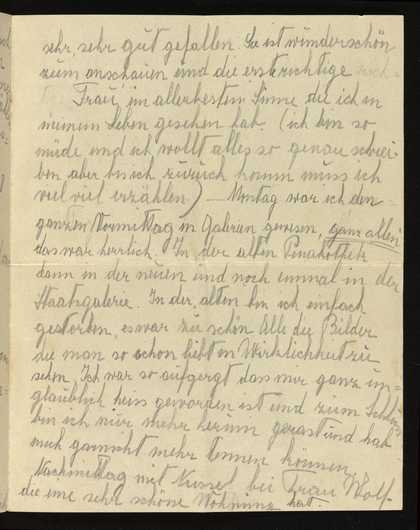 sehr, sehr gut gefallen. Sie ist wunderschön
zum anschauen und die erste richtige
Frau, im allerbesten Sinne, die ich in
meinem Leben gesehen hab. (ich bin so
müde und ich wollt alles so genau schrei-
ben aber bis ich zurück komm muss ich
viel viel erzählen) — Montag war ich den
ganzen Vormittag in Galerien gewesen, ganz allein
das war herrlich. In der alten Pinakothek
dann in der neuen und noch einmal in der
Staatsgalerie. In der alten bin ich einfach
gestorben, es war zu schön Alle die Bilder
die man so schon liebt in Wirklichkeit zu
sehen. Ich war so aufgeregt dass mir ganz un-
glaublich heiss geworden ist und zum Schluss
bin ich nur mehr herum gerast und hab
mich garnicht mehr trennen können.
Nachmittag mit bei Frau Wolf
die eine sehr schöne Wohnung hat.